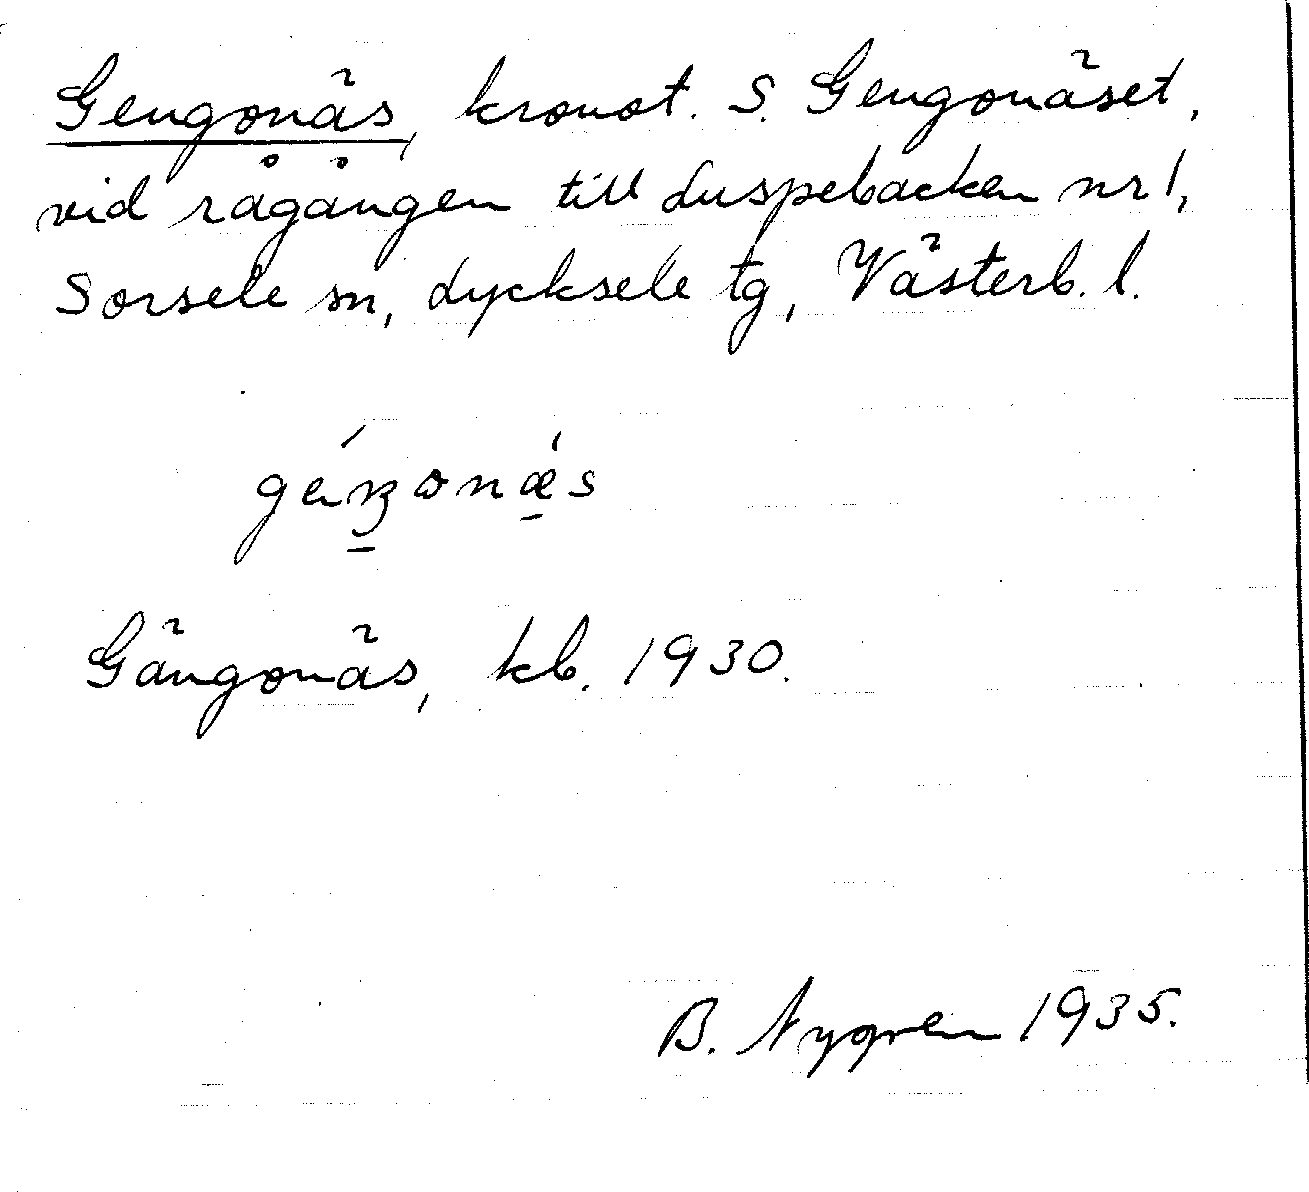 Gengonäs, kronot. S. Gengonäset,
vid rågången till Luspebacken nr 1,
Sorsele sn, Lycksele tg, Västerb. l.
Gängonäs, kb. 1930.
B. Nygren 1935.